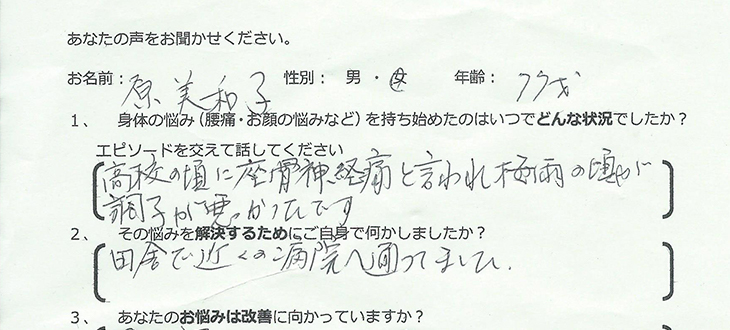 あなたの声をお聞かせください。
お名前： 原 美和子 性別： 男 ・ 女 年齢： 77才
1、 身体の悩み（腰痛・お顔の悩みなど）を持ち始めたのはいつでどんな状況でしたか？
エピソードを交えて話してください
高校の頃に座骨神経痛と言われ梅雨の頃が
調子が悪かったです
2、 その悩みを解決するためにご自身で何かしましたか？
田舎で近くの病院へ通ってました.
3、 あなたのお悩みは改善に向かっていますか？